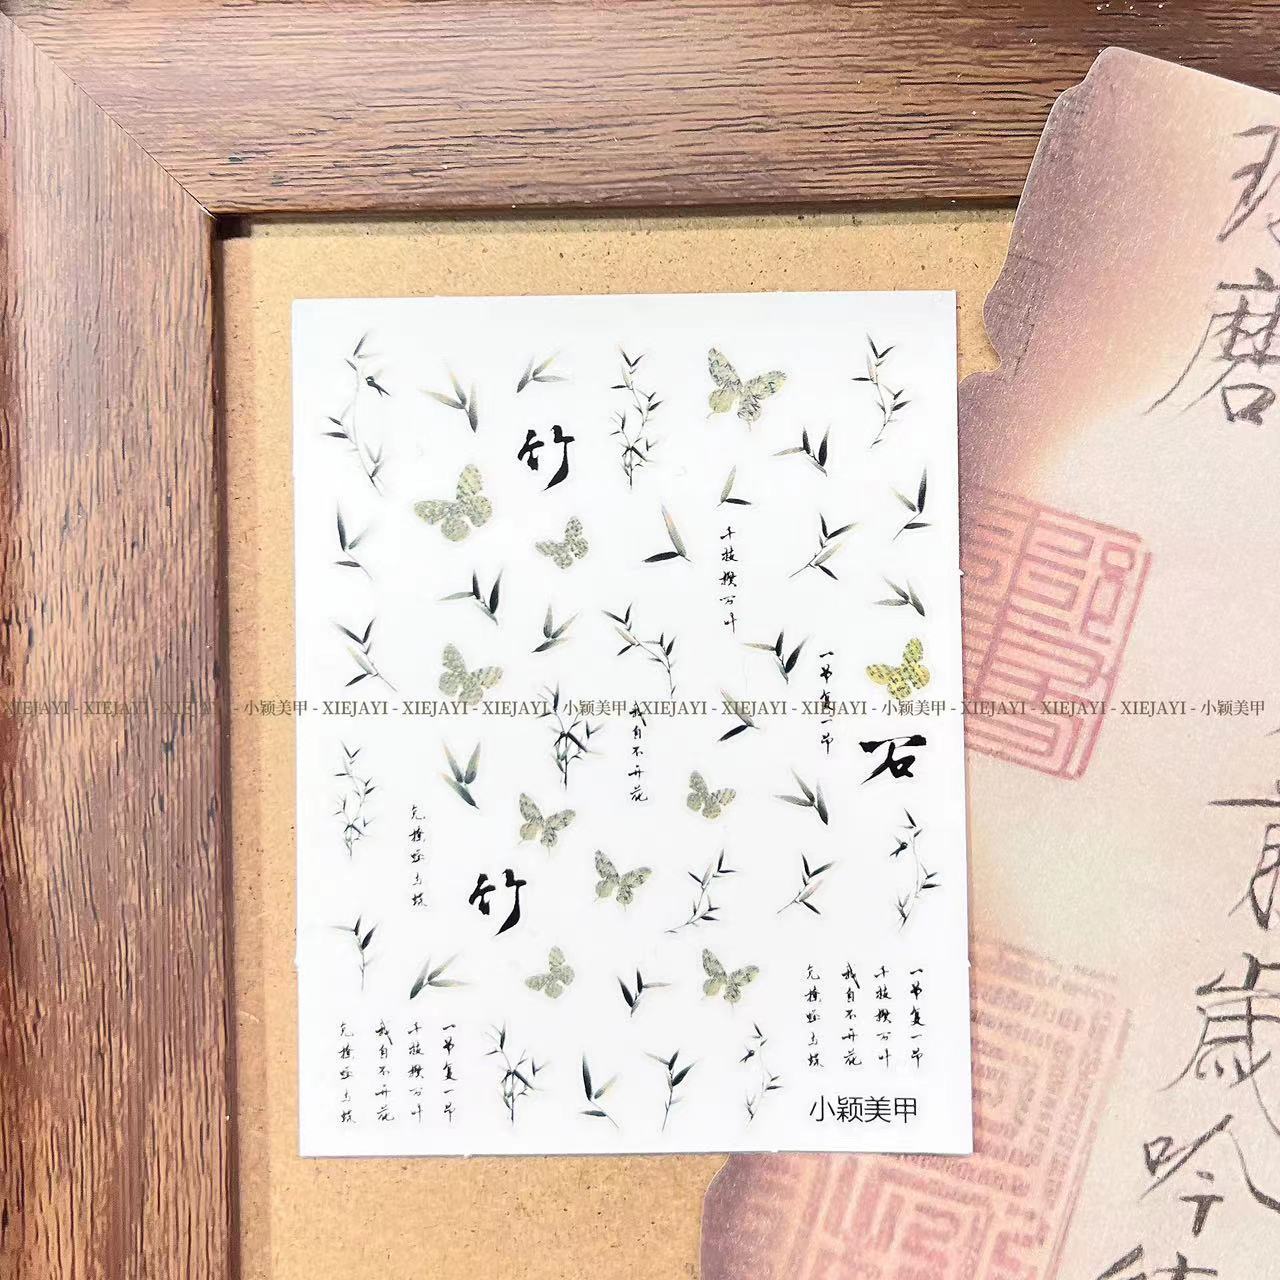 竹
千枝攒万叶
一节复一节
XIEJAYI - XIEJAYI - XIEJAYI - 小颖美甲 - XIEJAYI - XIEJAYI - XIEJAYI - 小颖美甲 - XIEJAYI - XIEJAYI - XIEJAYI - XIEJAYI - 小颖美甲
我自不开花
石
免撩蜂与蝶
竹
一节复一节
千枝攒万叶
我自不开花
免撩蜂与蝶
一节复一节
千枝攒万叶
我自不开花
免撩蜂与蝶
小颖美甲
磨
前
歲
吟